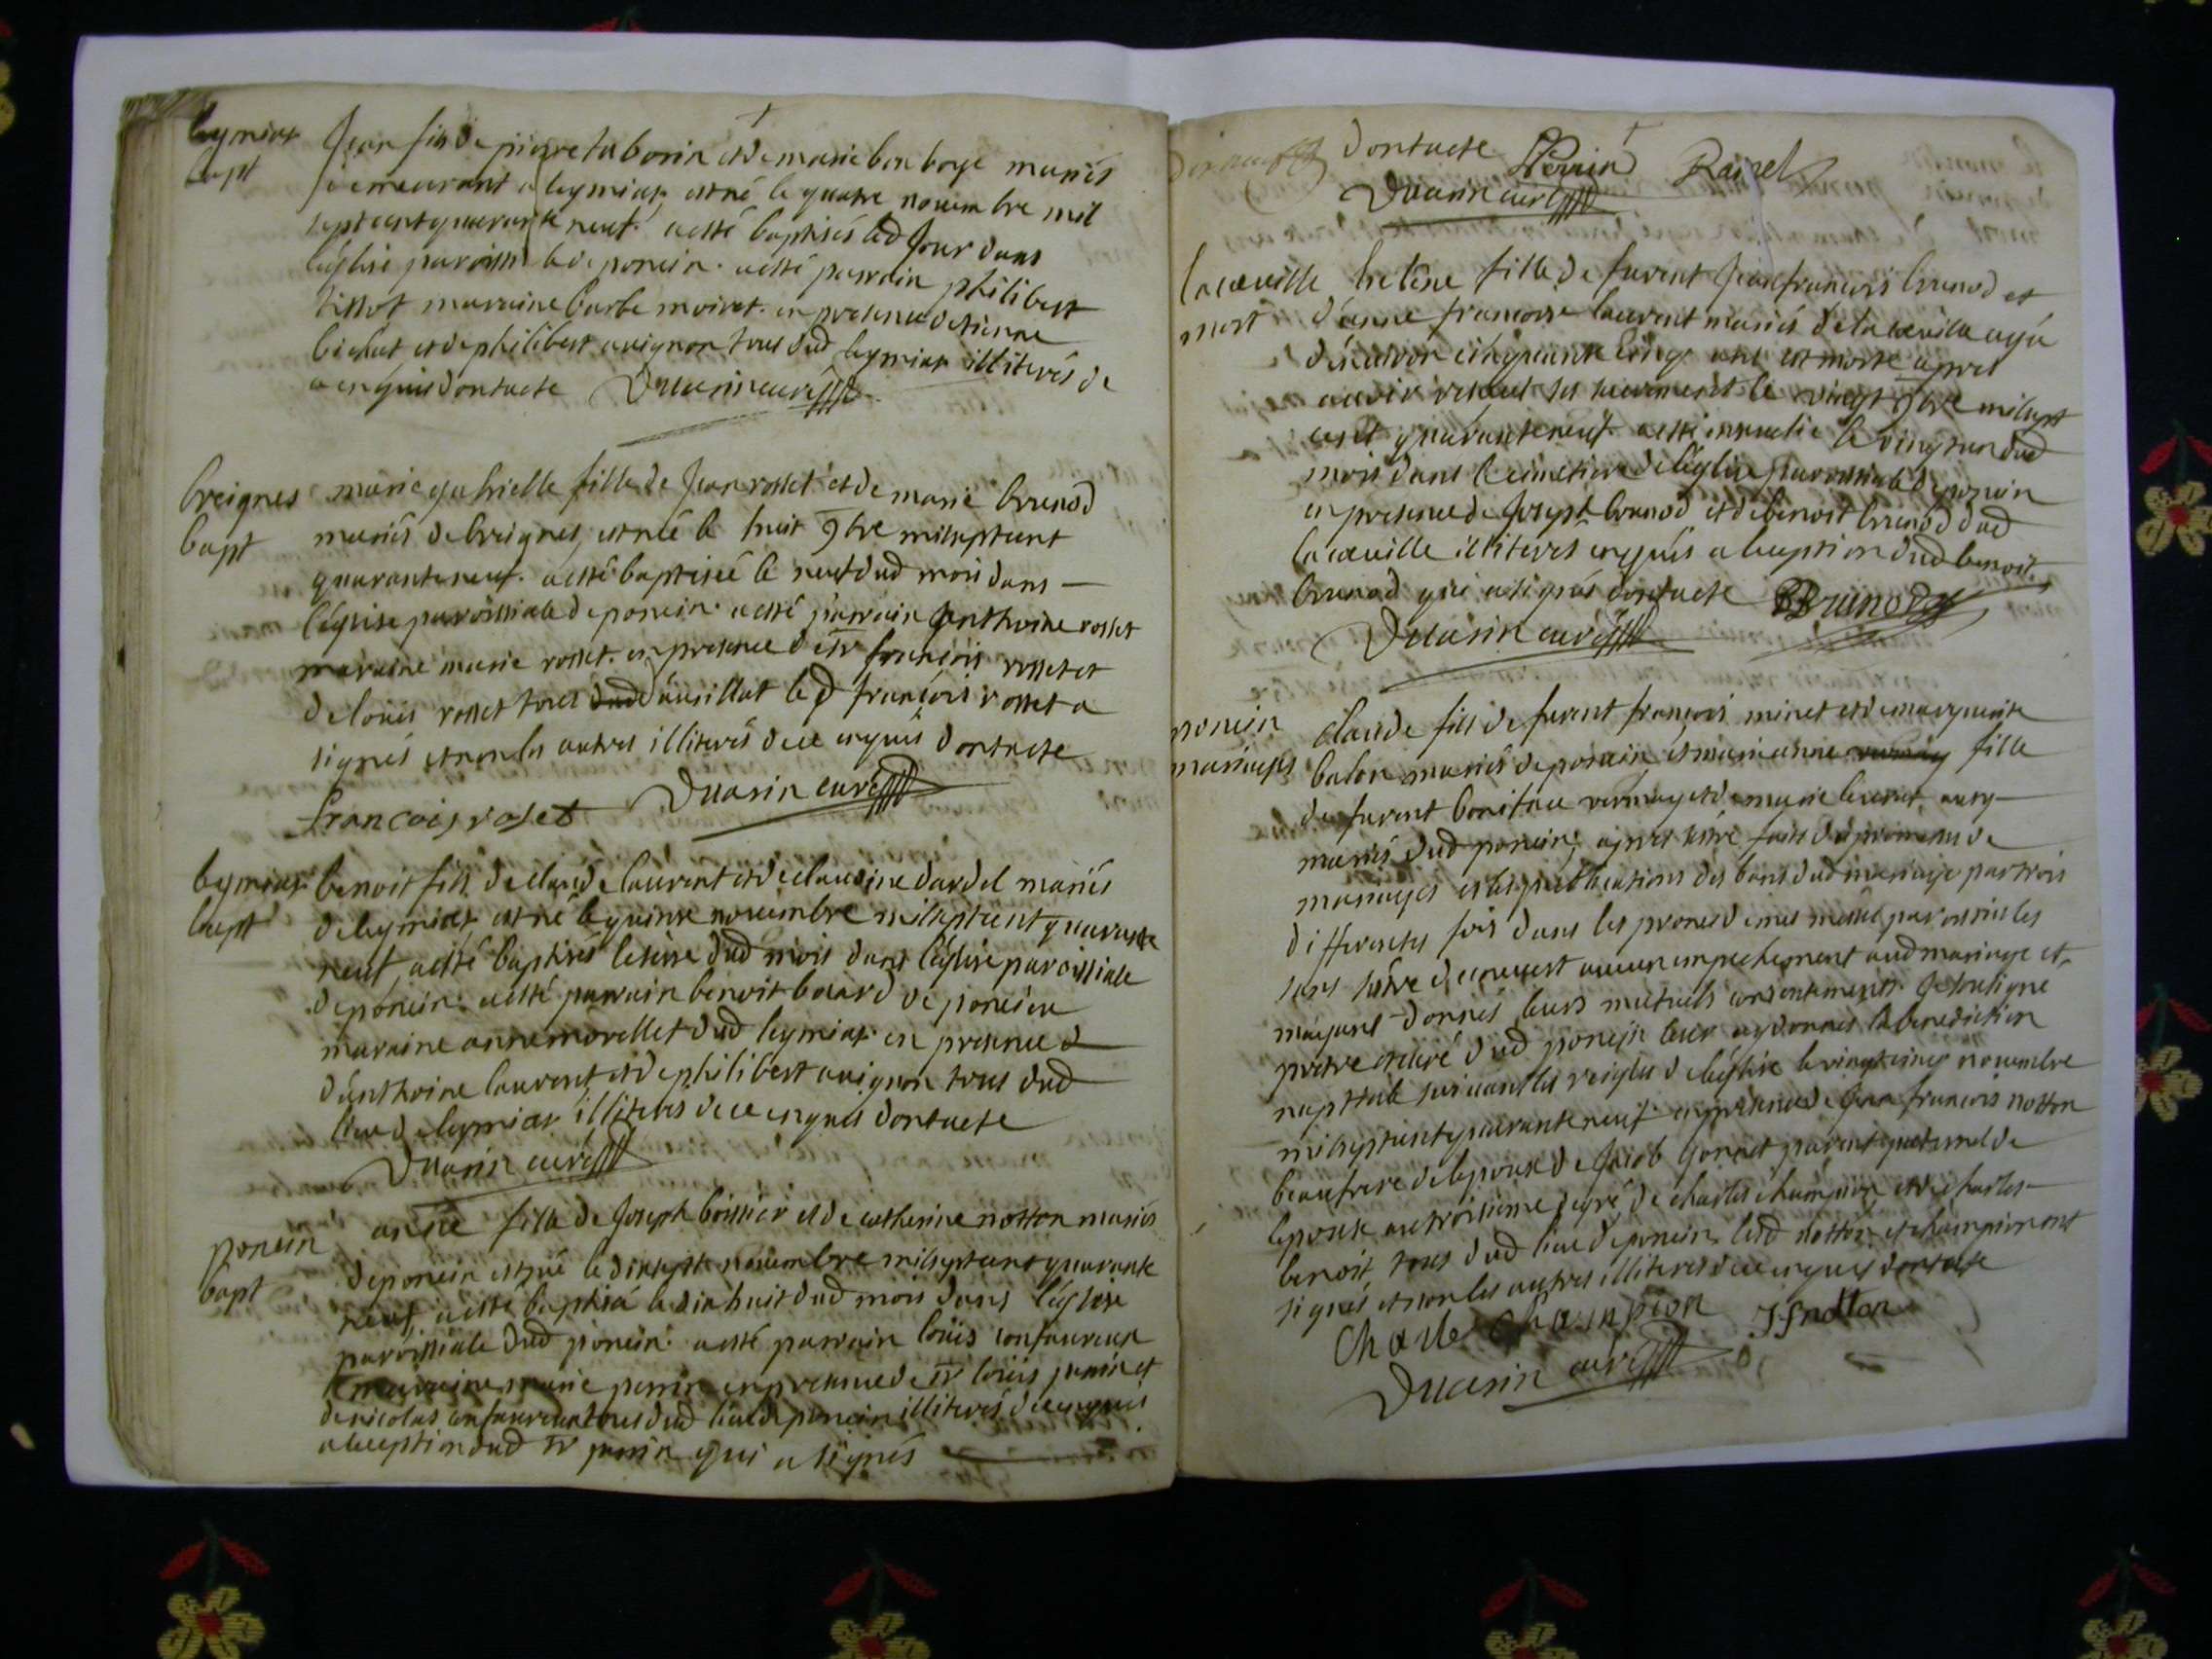 leymiat Jean fils de pierre taborin et de marie bonborge mariés
bapt demeurant a leymiat est né le quatre novembre mil
sept cent quarante neuf. a esté baptisés led Jour dans
léglise paroissiale de poncin. a esté parrain philibert
tissot maraine barbe moiret. en presence destienne
bichat et de philibert avignon tous dud leymiat illiterés de
ce enquis dont acte Duarin curé
breignes marie gabrielle fille de Jean rosset et de marie brunod
bapt mariés de breignes, est née le huit 9bre mil sept cent
quarante neuf. a esté baptisée le neuf dud mois dans
léglise paroissiale de poncin. a esté parrain anthoine rosset
maraine marie rosset. en presence de sr françois rosset et
de louis rosset tous dud le d françois rosset a
signés et non les autres illiterés de ce enquis dont acte
francois roset Duarin curé
leymiat benoit fils de claude laurent et de claudine dardel mariés
bapt de leymiat est né le quinse novembre mil sept cent quarante
neuf, a esté baptisés le seise dud mois dans léglise paroissiale
de poncin. a esté parrain benoit bavard de poncin
maraine anne morellet dud leymiat. en presence d
d'anthoine laurent et de philibert avignon tous dud
lieu de leymiat illiterés de ce enquis dont acte
Duarin curé
poncin anne fille de Joseph boissier et de catherine notton mariés
bapt de poncin est né le dixsept novembre mil sept cent quarante
neuf a esté baptisá le dix huit dud mois dans léglise
paroissiale dud poncin. a esté parrain louis confavreux
maraine marie perrin en presence de sr louis perrin et
de nicolas confavreux tous dud lieu de poncin illiterés de ce enquis
a lexeption dud sr perrin qui a signés
dont acte Perrin Ravet
Duarin curé
lacueille helene fille de furent Jean francois brunod et
mort d'anne francoise laurent mariés de la cueille agée
denviron cinquante cinq ans est morte apres
avoir resçeut ses sacrements le vingt 9bre mil sept
cent quarante neuf. a esté inhumée le vingt un dud
mois dans le cimetiere de léglise paroissiale de poncin
en presence de Joseph brunod et de benoit brunod dud
la cueille illiterés enquis a lexeption dud benoit
brunod qui a signés dont acte BBrunod
Duarin curé
poncin claude fils de furent françois minet et de marguerite
mariages balon mariés de poncin, et marianne fille
de furent boniface vermay et de marie auxy
mariés dud poncin, apres sêtre faits des promesses de
mariages et les publications des bans dud mariage par trois
differentes fois dans les prones de mes messes paroissiales
sans sêtre decouvert aucun empechement aud mariage et
mayant donnés leurs mutuels consentements. Je soussigne
pretre et curé dud poncin leur ay donnés la benediction
nupttiale suivant les reigles de leglise le vingt cinq novembre
mil sept cent quarante neuf. en presence de Jean francois notton
beaufrere de lepoux de Jacob gonnet parent paternel de
lepouse au troisieme degré de charles champion et de charles
benoit, tous dud lieu de poncin, lesd notton et champion ont
signés et non les autres illiterés de ce enquis dont acte
Charle Champion JFnotton
Duarin curé